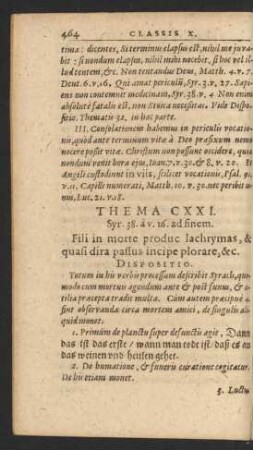 464 CLASSIS X.
tima: dicentes, Si terminus elapsus est, nihil me juva-
bit: si nondum elapsus, nihil mihi nocebit, si hoc vel il-
lud tentem, &c. Non tentandus Deus, Matth. 4. v. 7.
Deut. 6. v. 16. Qui amat periculū, Syr. 3. v. 27. Sapi-
ens non contemnit medicinam, Syr. 38. v. 4 Non enim
absolutè fatalis est, non Stoica necessitas. Vide Dispo-
sitio. Thematis 32. in hac parte.
III. Consolationem habemus in periculis vocatio-
nis, quòd ante terminum vitæ à Deo præfixum nemo
nocere possit vitæ. Christum non possunt occidere, quia
nondum venit hora ejus, Ioan. 7. v. 30. & 8. v. 20. It
Angeli custodiunt in viis, scilicet vocationis, Psal. 91.
v. 11. Capilli numerati, Matth. 10. v. 30. nec peribit u-
nus, Luc. 21. v. 18.
THEMA CXXI.
Syr. 38. à v. 16. ad finem.
Fili in morte produc lachrymas, &
quasi dira passus incipe plorare, &c.
DISPOSITIO.
Totum in his verbis processum describit Syrach, quo-
modo cum mortuis agendum ante & post funus, & u-
tilia præcepta tradit multa. Cum autem præcipuè 2
sint observanda circa mortem amici, de singulis ali-
quid monet.
1. Primùm de planctu super defunctū agit, Dann
das ist das erste / wann man todt ist / daß es an
das weinen vnd heulen gehet.
2. De humatione, & funeris curatione cogitatur.
De his etiam monet.
3. Luctu